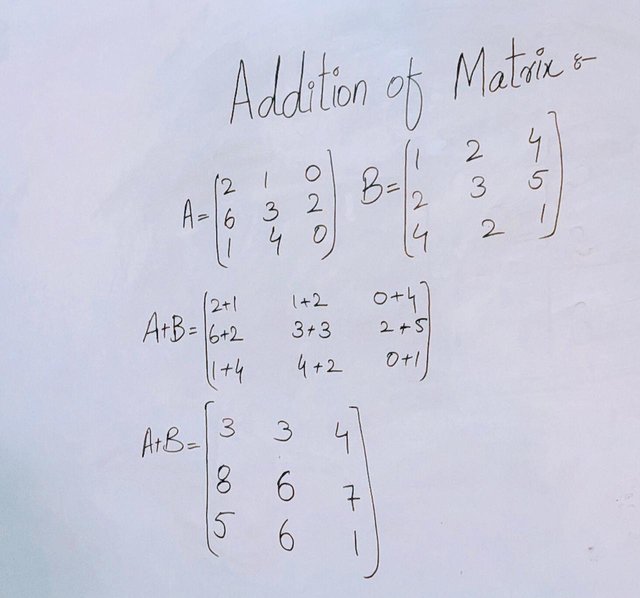 Addition of Matrix :-
A = [2 1 0 B = [1 2 4
6 3 2 2 3 5
1 4 0] 4 2 1]
A+B = [2+1 1+2 0+4
6+2 3+3 2+5
1+4 4+2 0+1]
A+B = [3 3 4
8 6 7
5 6 1]